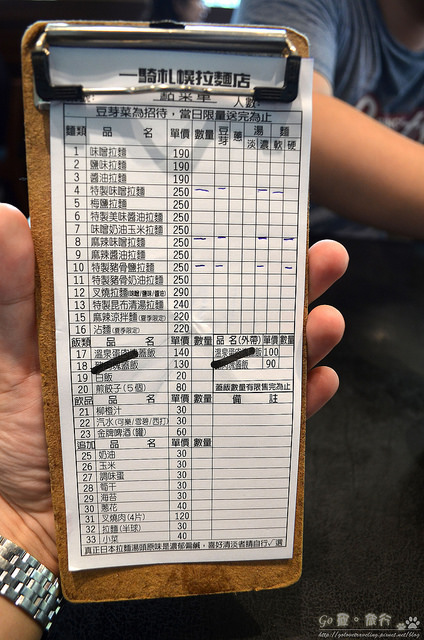 一騎札幌拉麵店
點菜單 人數
豆芽菜為招待，當日限量送完為止
麵類 品 名 單價 數量 豆芽 蔥 湯 淡 濃 麵 軟 硬
1 味噌拉麵 190
2 鹽味拉麵 190
3 醬油拉麵 190
4 特製味噌拉麵 250
5 梅鹽拉麵 250
6 特製美味醬油拉麵 250
7 味噌奶油玉米拉麵 250
8 麻辣味噌拉麵 250
9 麻辣醬油拉麵 250
10 特製豬骨鹽拉麵 250
11 特製豬骨奶油拉麵 250
12 叉燒拉麵(味噌/鹽味/醬油) 290
13 特製昆布清湯拉麵 240
15 麻辣涼拌麵(夏季限定) 220
16 沾麵(夏季限定) 220
飯類 品 名 單價 數量 品 名(外帶) 單價 數量
17 溫泉蛋 蓋飯 140 溫泉蛋 飯 100
18 蓋飯 130 蓋飯 90
19 白飯 20
20 煎餃子(5個) 80 蓋飯數量有限售完為止
飲品 品 名 單價 數量 備 註
21 柳橙汁 30
22 汽水(可樂/雪碧/西打) 30
23 金牌啤酒(罐) 60
追加 品 名 單價 數量
25 奶油 30
26 玉米 30
27 調味蛋 30
28 筍干 30
29 海苔 30
30 蔥花 40
31 叉燒肉(4片) 120
32 拉麵(半球) 30
33 小菜 40
真正日本拉麵湯頭原味是濃郁偏鹹，喜好清淡者請自行√選
Go 愛。旅行
http://goloovetraveling.pixnet.net/blog